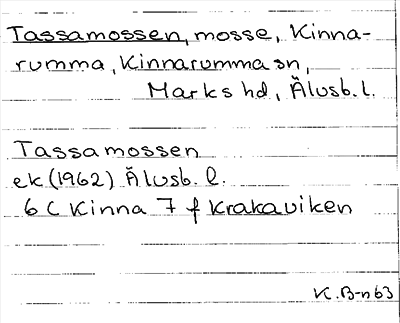 Tassamossen, mosse, Kinna-
rumma, Kinnarumma sn,
Marks hd, Älvsb. l.
Tassamossen
ek (1962) Älvsb. l.
6 C Kinna 7 f Krakaviken
K. B-n 63